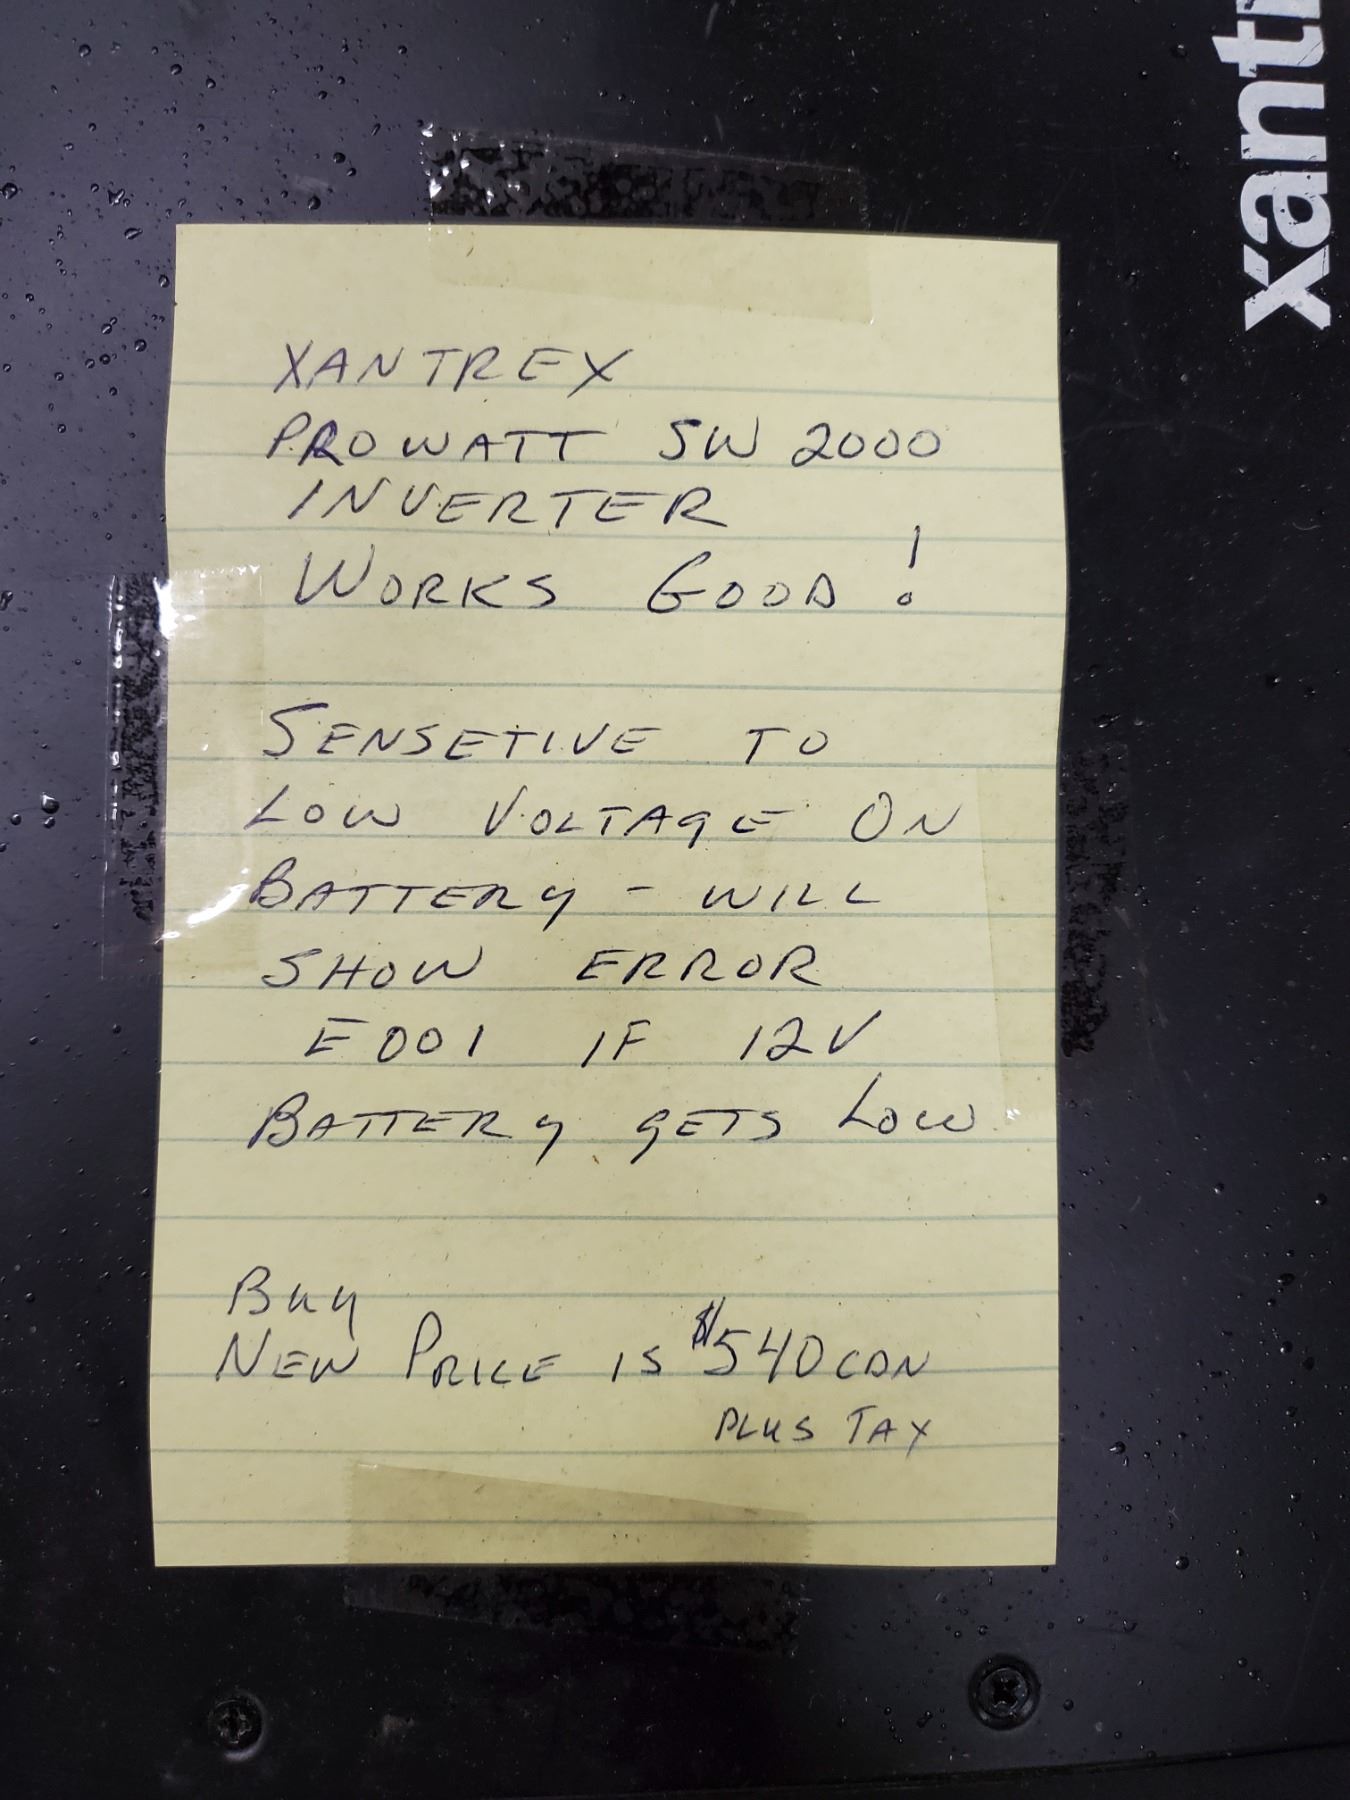 xant
XANTREX
PROWATT SW 2000
INVERTER
WORKS GOOD!
SENSETIVE TO
LOW VOLTAGE ON
BATTERY - WILL
SHOW ERROR
E001 IF 12V
BATTERY GETS LOW
BUY
NEW PRICE IS $540 CDN
PLUS TAX